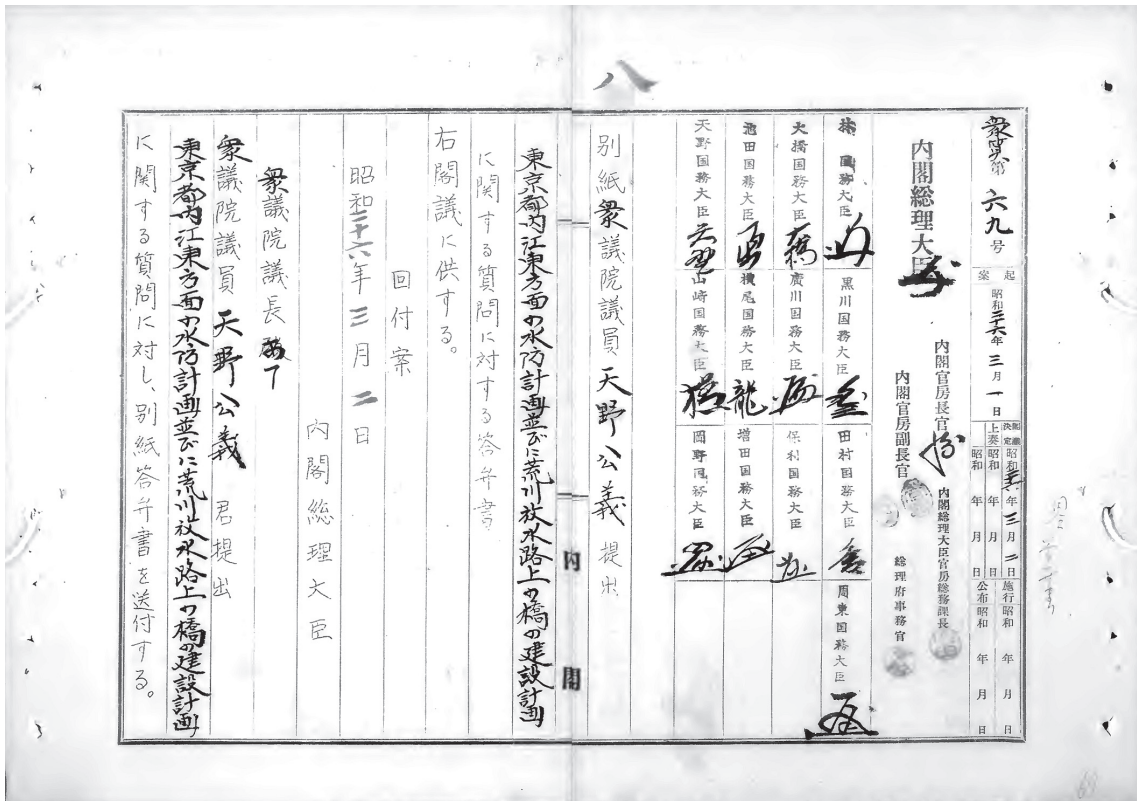 八
衆質第六九号
起案 昭和二十六年三月一日
閣議決定 昭和二十六年三月二日
上奏 昭和 年 月 日
昭和 年 月 日
施行 昭和 年 月 日
公布 昭和 年 月 日
内閣総理大臣
内閣官房長官
内閣官房副長官
内閣総理大臣官房総務課長
総理府事務官
林国務大臣
黒川国務大臣
田村国務大臣
周東国務大臣
大橋国務大臣 大橋
廣川国務大臣
保利国務大臣
池田国務大臣
横尾国務大臣 龍
増田国務大臣
天野国務大臣 天野
山崎国務大臣
岡野国務大臣
別紙衆議院議員天野公義提出
東京都内江東方面の水防計画並びに荒川放水路上の橋の建設計画
に関する質問に対する答弁書
右閣議に供する。
回付案
昭和二十六年三月二日
内閣総理大臣
衆議院議長あて
衆議院議員天野公義君提出
東京都内江東方面の水防計画並びに荒川放水路上の橋の建設計画
に関する質問に対し、別紙答弁書を送付する。
内閣